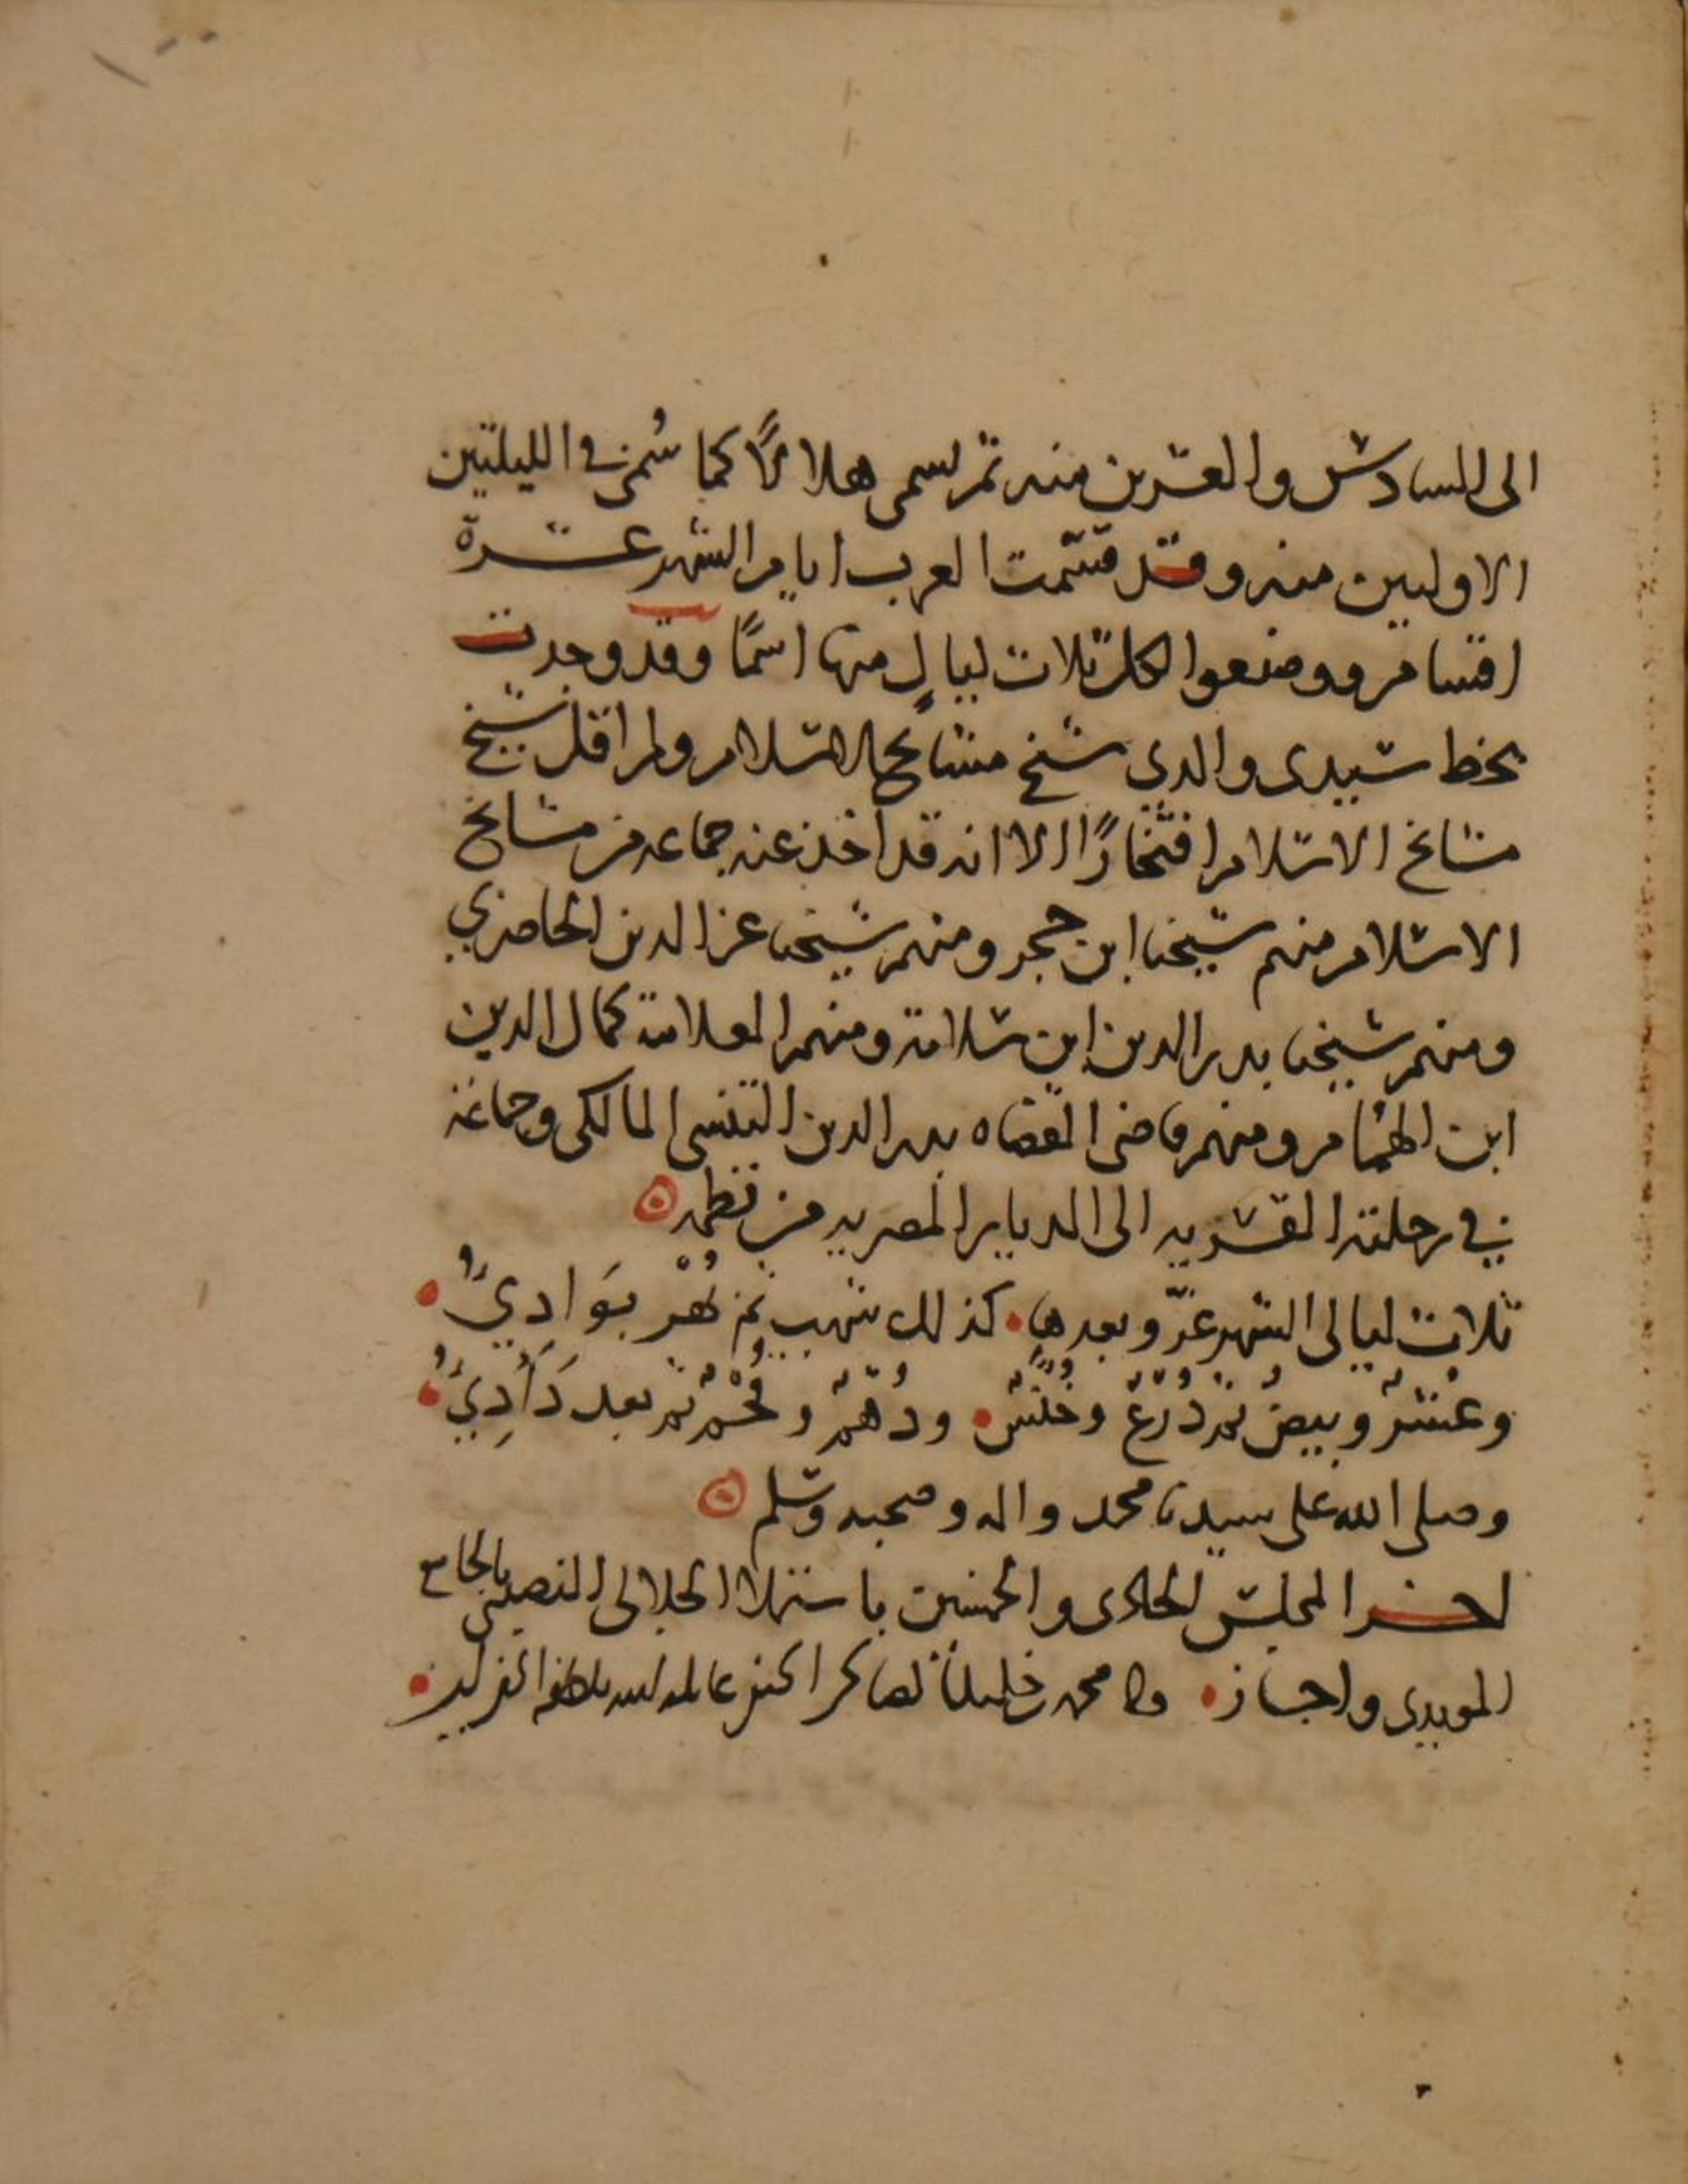 الى السادس والعشرين منه ثم يسمى هلالًا كما سُمي في الليلتين
الاوليين منه وقد قسّمت العرب ايام الشهر عشرة
اقسام ووضعوا لكل ثلاث ليالٍ منها اسمًا وقد وجدت
بخط سيدي والدي شيخ مشايخ الاسلام ولم اقل شيخ
مشايخ الاسلام افتخارًا الا انه قد اخذ عنه جماعه من مشايخ
الاسلام منهم شيخنا ابن حجر ومنهم شيخنا عز الدين الحاضري
ومنهم شيخنا بدر الدين ابن سلامة ومنهم العلامة كمال الدين
ابن الهُمام ومنهم قاضي القضاه بدر الدين التنسي المالكي وجماعة
في رحلته القسريه الى الديار المصريه من نظمه
ثلاث ليالي الشهر غرّ وبعدها كذلك شهب ثم بُهْرٌ بَوَادِيُ
وعُشْرٌ وبيضٌ ثم دُرَعٌ وخُنَّسٌ ودُهْمٌ وفُحْمٌ ثم بعد دَآدِيُ
وصلى الله على سيدنا محمد واله وصحبه وسلم
اخر المجلس الحادي والخمسين باستملا الجلالي النصيبي بالجامع
المويدي واجاز محمد خليل